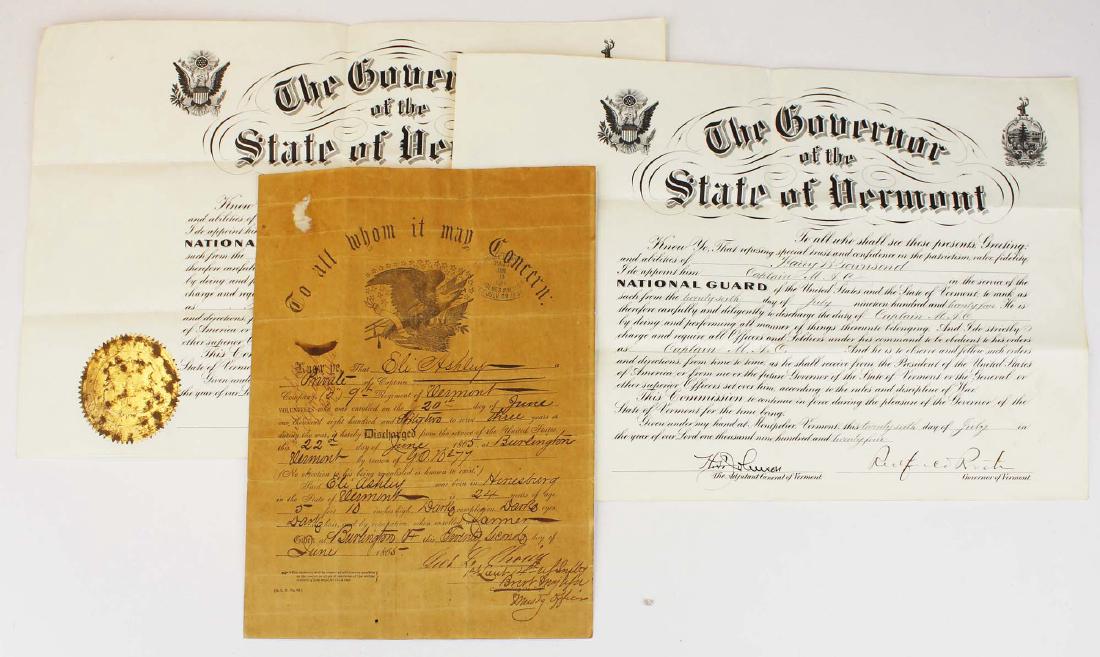 The Govern
of the
State of Ver
Know
and abilities of
I do appoint him
NATIONAL
such from the
therefore carefully
by doing and perf
charge and require
as
and directions, f
of America or
other superior
This Com
State of Vermont
Given under
the year of our Lord
To all whom it may Concern:
Know ye, That Eli Ashley a
Private of Captain
Company "B" 9th Regiment of Vermont
VOLUNTEERS who was enrolled on the 20th day of June
one thousand eight hundred and to serve Three years or
during the war, is hereby Discharged from the service of the United States
this 22d day of June 1865 at Burlington
Vermont by reason of
(No objection to his being reenlisted is known to exist.)
Said Eli Ashley was born in Hinesburg
in the State of Vermont is 24 years of age
5 feet 10 inches high Dark complexion Dark eyes
Dark hair, and by occupation, when enrolled, a Farmer
Given at Burlington Vt this Twenty Second day of
June 1865
The Governor
of the
State of Vermont
To all who shall see these presents, Greeting:
Know Ye, That reposing special trust and confidence in the patriotism, valor, fidelity
and abilities of Harry W Townsend
I do appoint him Captain M.A.C. in the service of the
NATIONAL GUARD of the United States and the State of Vermont, to rank as
such from the twenty sixth day of July nineteen hundred and twenty five He is
therefore carefully and diligently to discharge the duty of Captain M.A.C.
by doing and performing all manner of things thereunto belonging. And I do strictly
charge and require all Officers and Soldiers under his command to be obedient to his orders
as Captain M.A.C. And he is to observe and follow such orders
and directions, from time to time, as he shall receive from the President of the United States
of America or from me or the future Governor of the State of Vermont or the General or
other superior Officers set over him, according to the rules and discipline of War.
This Commission to continue in force during the pleasure of the Governor of the
State of Vermont for the time being.
Given under my hand at Montpelier, Vermont, this twenty sixth day of July in
the year of our Lord one thousand nine hundred and twenty five
The Adjutant General of Vermont Governor of Vermont